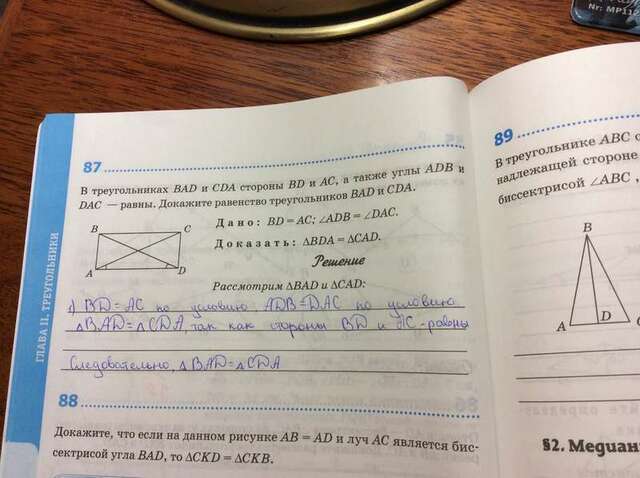 Nr: MP112
87
В треугольниках BAD и CDA стороны BD и AC, а также углы ADB и
DAC — равны. Докажите равенство треугольников BAD и CDA.
Дано: BD = AC; ∠ADB = ∠DAC.
Доказать: △BDA = △CAD.
Решение
B C
A D
Рассмотрим △BAD и △CAD:
1) BD = AC по условию, ADB = DAC по условию
△BAD = △CDA, так как стороны BD и AC - равны
Следовательно, △BAD = △CDA
88
Докажите, что если на данном рисунке AB = AD и луч AC является бис-
сектрисой угла BAD, то △CKD = △CKB.
ГЛАВА II. ТРЕУГОЛЬНИКИ
89
В треугольнике ABC
надлежащей стороне
биссектрисой ∠ABC,
B
A D C
§2. Медиан